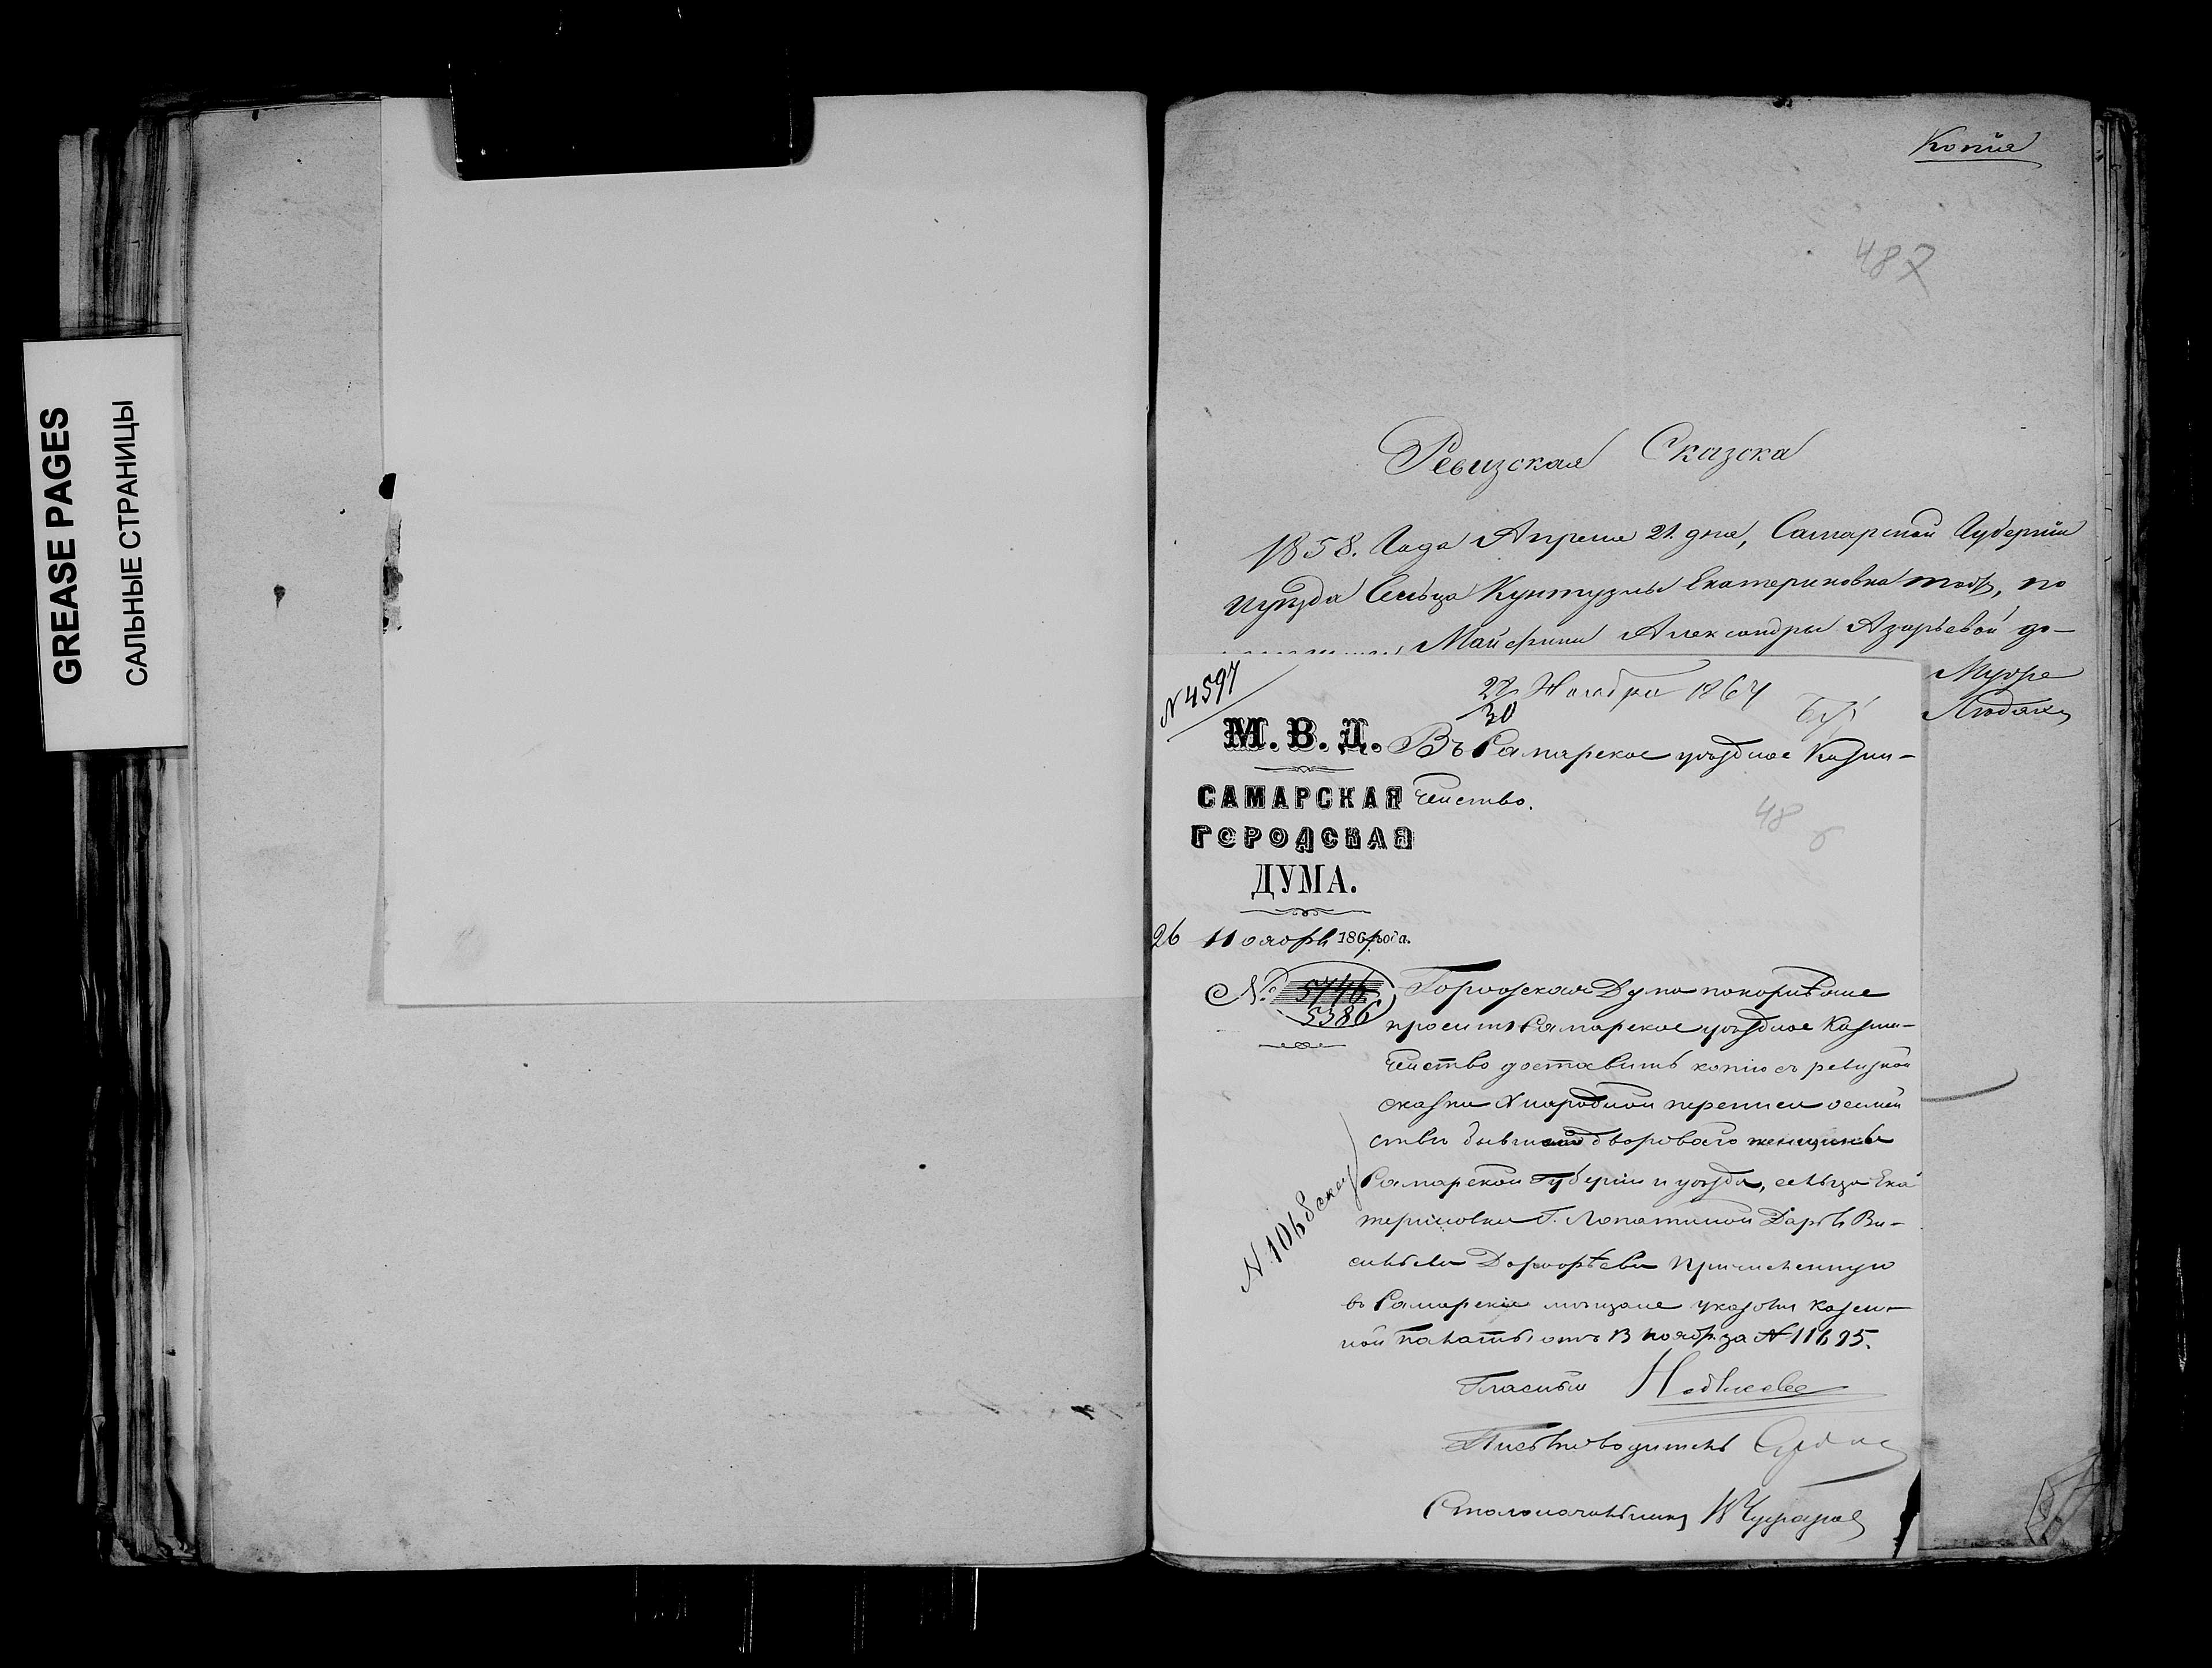 GREASE PAGES
САЛЬНЫЕ СТРАНИЦЫ
Копія
487
Ревизская Сказка
1858. Года Апреля 21. дня, Самарской Губерніи
и уѣзда Сельца Кунтузлы Екатериновка тожъ, по
Маіорши Александры Азарьевой до-
Людяхъ
N 4597
Ноября 1864
30
М. В. Д.
Въ Самарское уѣздное Казна-
САМАРСКАЯ
чейство.
ГОРОДСКАЯ
48
ДУМА.
26 Ноября 1864 года.
№ 5746
5386
Городская Дума покорнѣйше
проситъ Самарское уѣздное Казна-
чейство доставить копію съ ревизкой
сказки X народной переписи о семей
ствѣ бывшей двороваго женщины
Самарской Губерніи и уѣзда, сельца Ека
териновки Г. Лопатиной Дарьи Ва-
сильевы Дорофѣевы причисленную
въ Самарскіе мѣщане указомъ казен-
ной палаты отъ 13 ноябр. за № 11695.
N 1068 сказ
Гласный
Письмоводитель
Столоначальникъ